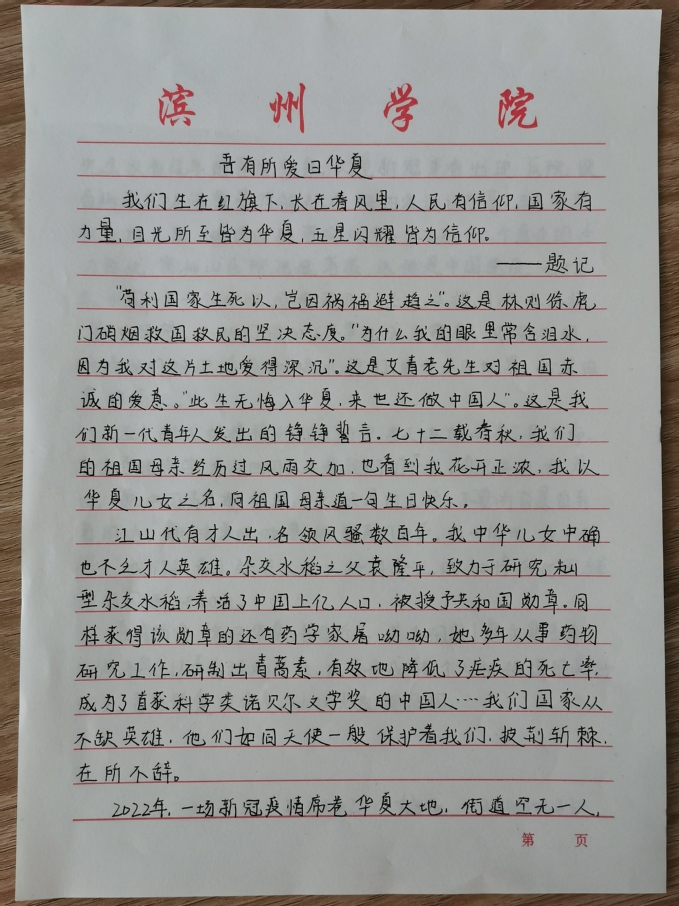 滨州学院
吾有所爱曰华夏
我们生在红旗下，长在春风里，人民有信仰，国家有
力量，目光所至皆为华夏，五星闪耀皆为信仰。
——题记
“苟利国家生死以，岂因祸福避趋之”。这是林则徐虎
门硝烟救国救民的坚决态度。“为什么我的眼里常含泪水，
因为我对这片土地爱得深沉”。这是艾青老先生对祖国赤
诚的爱意。“此生无悔入华夏，来世还做中国人”。这是我
们新一代青年人发出的铮铮誓言。七十二载春秋，我们
的祖国母亲经历过风雨交加，也看到我花开正浓，我以
华夏儿女之名，向祖国母亲道一句生日快乐。
江山代有才人出，名领风骚数百年。我中华儿女中确
也不乏才人英雄。杂交水稻之父袁隆平，致力于研究籼
型杂交水稻，养活了中国上亿人口，被授予共和国勋章。同
样获得该勋章的还有药学家屠呦呦，她多年从事药物
研究工作，研制出青蒿素，有效地降低了疟疾的死亡率，
成为了首获科学类诺贝尔文学奖的中国人……我们国家从
不缺英雄，他们如同天使一般保护着我们，披荆斩棘，
在所不辞。
2022年，一场新冠疫情席卷华夏大地，街道空无一人，
第 页